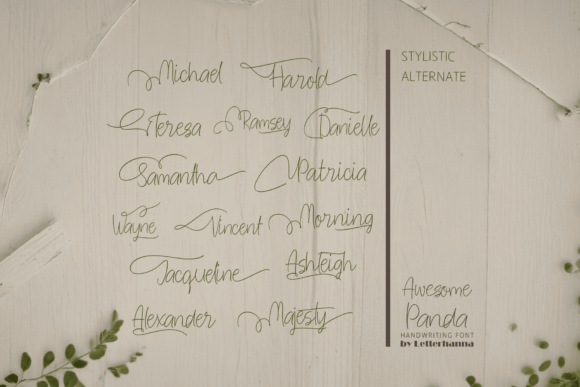 Michael Harold
Teresa Ramsey Danielle
Samantha Patricia
Wayne Vincent Morning
Jacqueline Ashleigh
Alexander Majesty
STYLISTIC
ALTERNATE
Awesome
Panda
HANDWRITING FONT
by Letterhanna